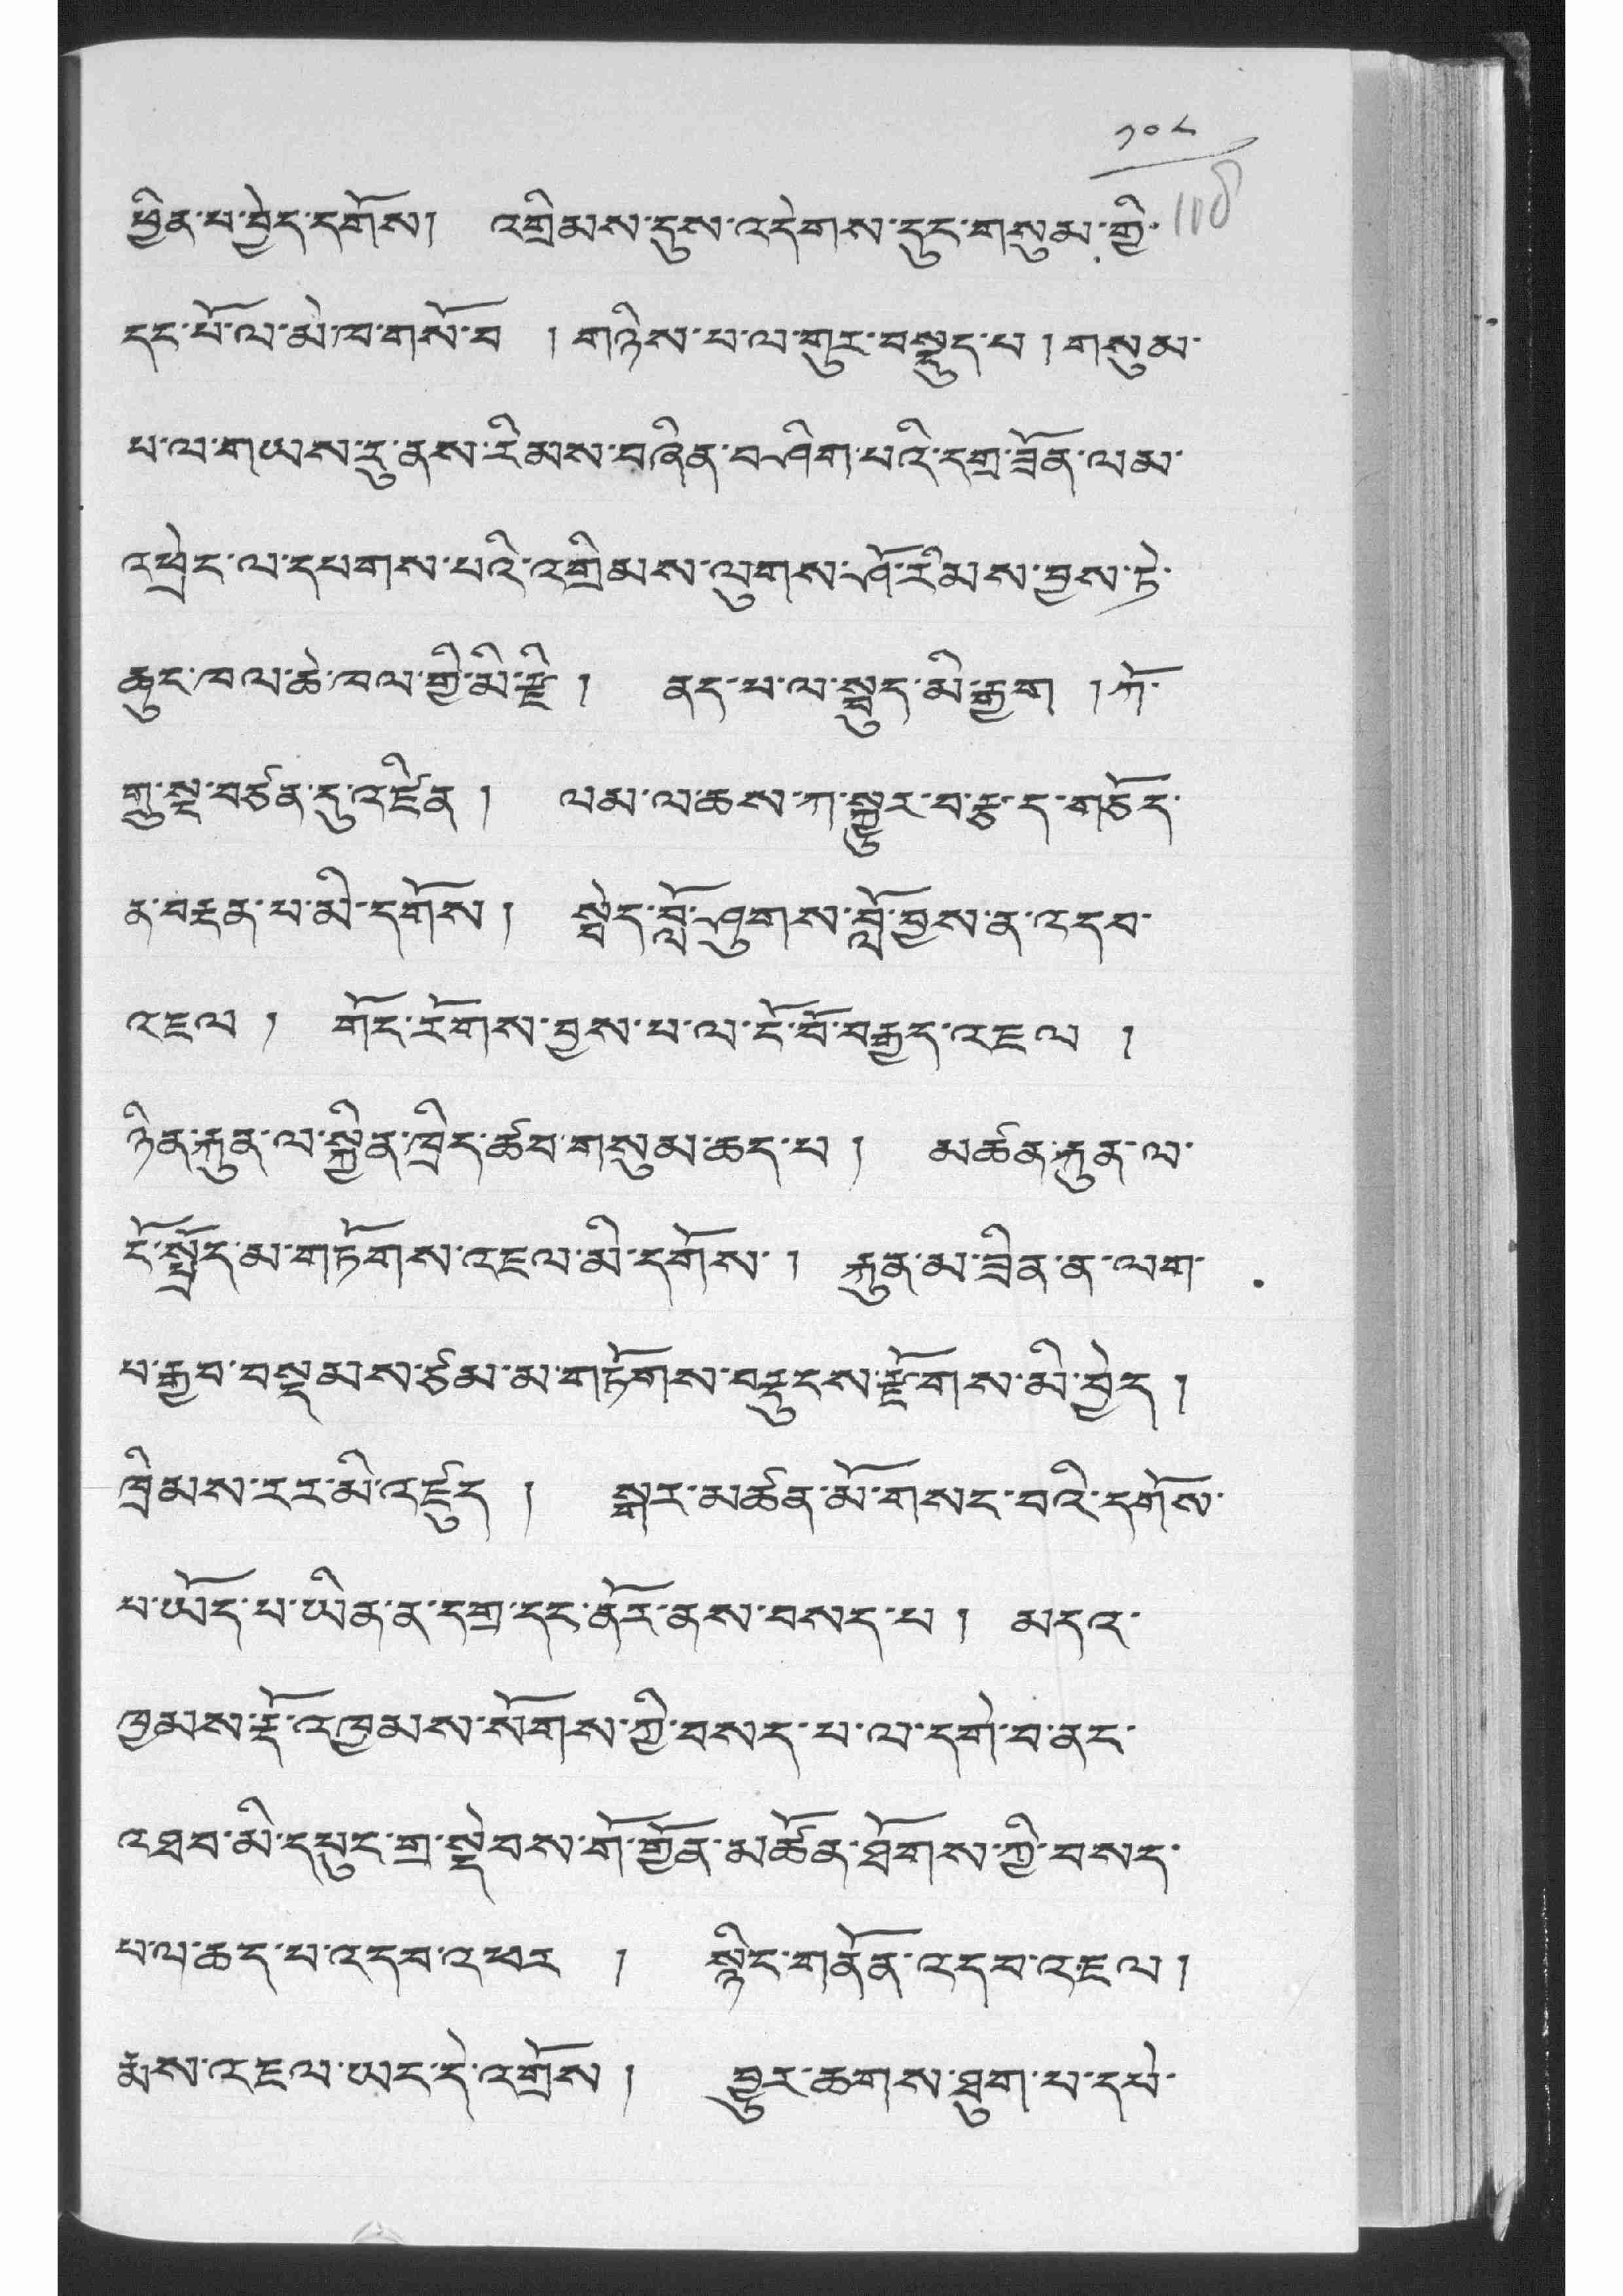 ༡༠༨
108
ཕྱིན་པ་བྱེད་དགོས། འགྲིམས་དུས་འདེགས་དུང་གསུམ་གྱི་
དང་པོ་ལ་མེ་ཁ་གསོ་བ །གཉིས་པ་ལ་གུར་བསྡུད་པ །གསུམ་
པ་ལ་གཡས་རུ་ནས་རིམས་བཞིན་བཤིག་པའི་དགྲ་ཟོན་ལམ་
འཕྲེང་ལ་དཔགས་པའི་འགྲིམས་ལུགས་ཤོ་རིམས་བྱས་ཏེ་
ཆུང་ཁལ་ཆེ་ཁལ་གྱི་མི་རྫི། ནད་པ་ལ་སྦུད་མི་རྒྱག །ཀོ་
གྲུ་སྔ་བཙན་དུ་འཛིན། ལམ་ལ་ཆས་ཀ་སྐྱུར་བ་རྩྭ་ད་གཅོད་
ན་བརྡན་པ་མི་དགོས། སྟེང་བློ་ཤུགས་བློ་བྱས་ན་འདབ་
འཇལ། གོང་རོགས་བྱས་པ་ལ་ངོ་བོ་བརྒྱད་འཇལ །
ཉིན་རྐུན་ལ་སྐྱིན་ཁྲིད་ཚབ་གསུམ་ཆད་པ། མཚན་རྐུན་ལ་
ངོ་སྤྲོད་མ་གཏོགས་འཇལ་མི་དགོས། རྐུན་མ་ཟིན་ན་ལག་
པ་རྒྱབ་བསྡམས་ཙམ་མ་གཏོགས་བརྡུངས་རྫོགས་མི་བྱེད།
ཁྲིམས་རར་མི་འཛུད། སྒར་མཚན་མོ་གསང་བའི་དགོས་
པ་ཡོད་པ་ཡིན་ན་དགྲ་དང་ནོར་ནས་བསད་པ། མདའ་
ཁྱམས་རྡོ་འཁྱམས་སོགས་ཀྱི་བསད་པ་ལ་དགེ་བ་ནང་
འཐབ་མི་དཔུང་གྲ་སྡེབས་གོ་གྱོན་མཚོན་ཐོགས་ཀྱི་བསད་
པ་ལ་ཆད་པ་འདབ་འཕར། སྙིང་གནོན་འདབ་འཇལ།
རྨས་འཇལ་ཡང་དེ་འགྲོས། བྱུར་ཆགས་ཐུག་པ་དཔེ་